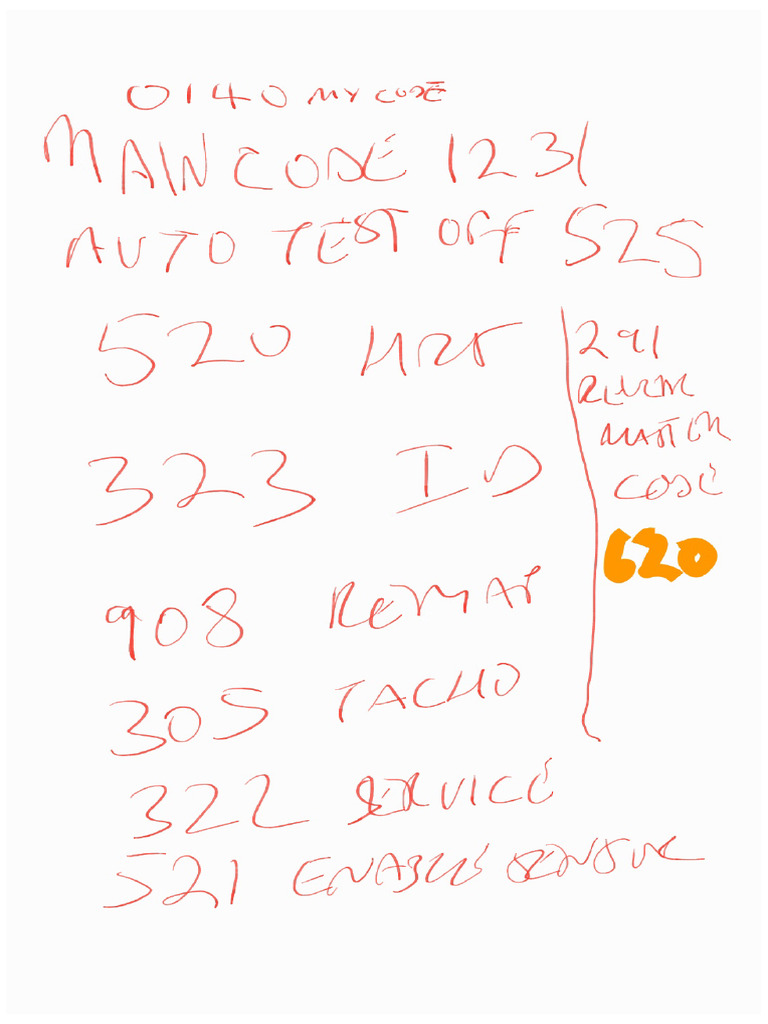 0140 MY CODE
MAIN CODE 1231
AUTO TEST OFF 525
520 HRS
323 ID
908 REMAP
305 TACHO
322 SERVICE
521 ENABLE
291
MASTER
CODE
620